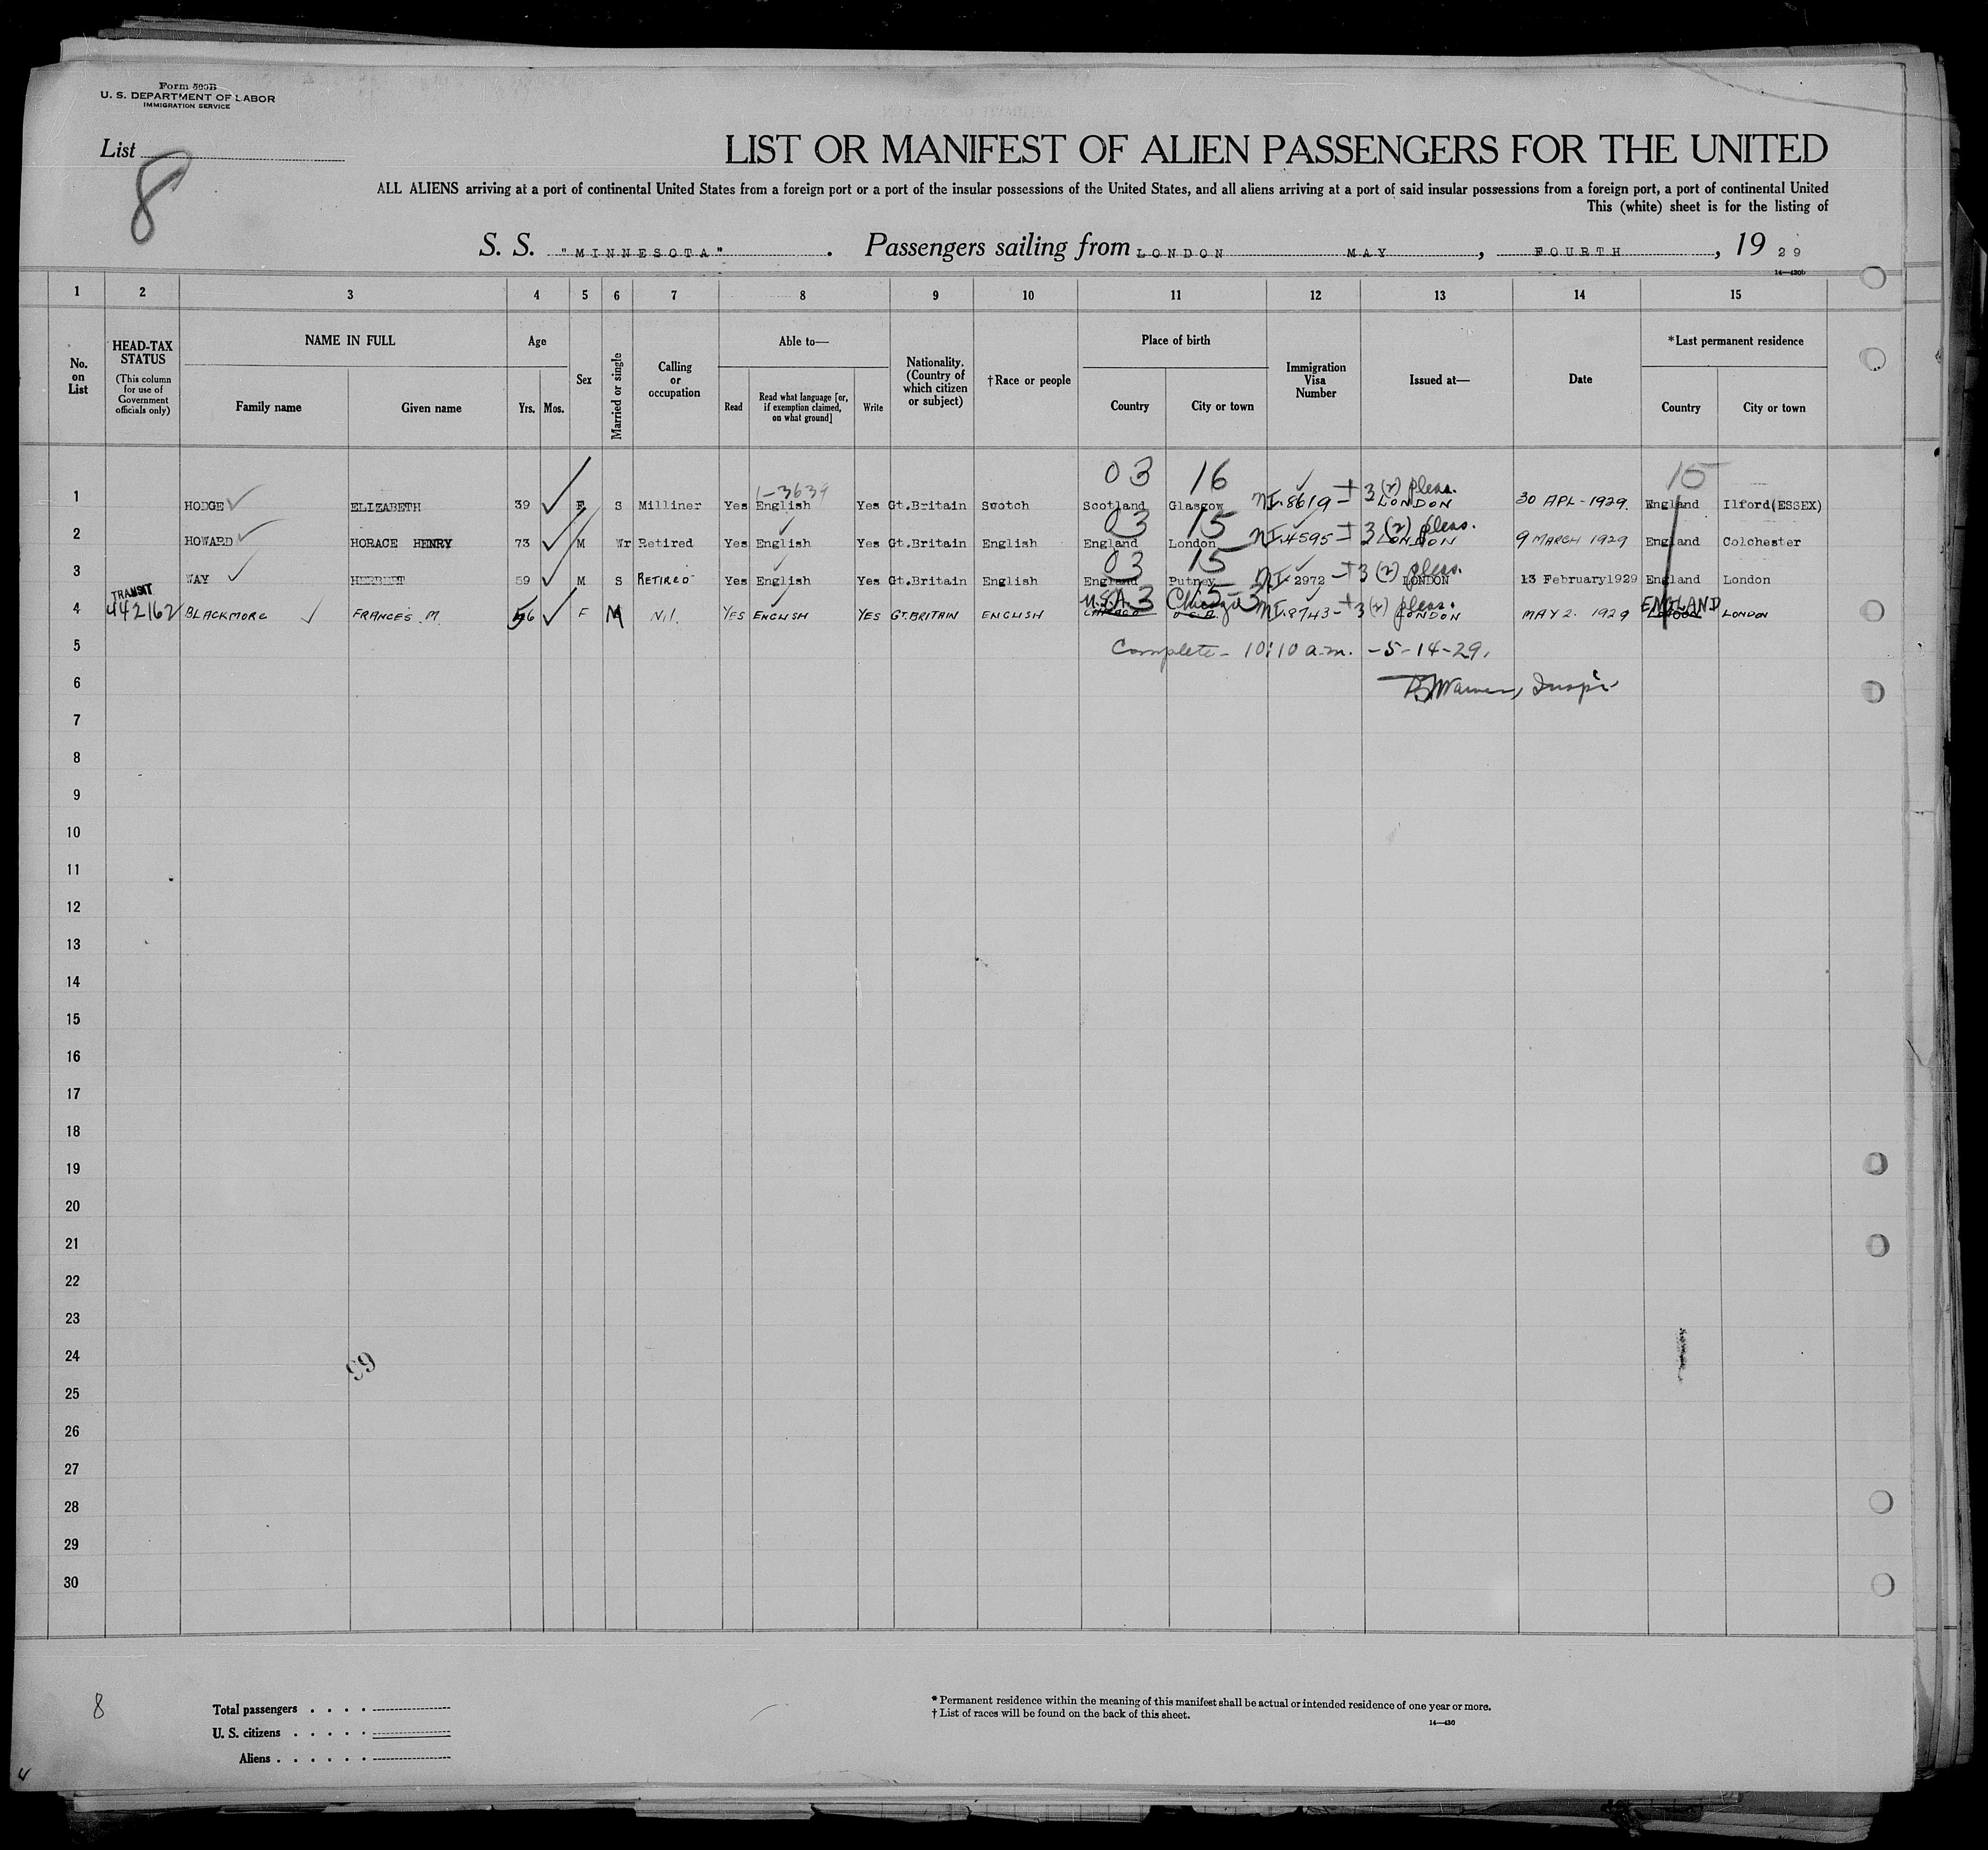 Form 500B
U. S. DEPARTMENT OF LABOR
IMMIGRATION SERVICE
List
8
LIST OR MANIFEST OF ALIEN PASSENGERS FOR THE UNITED
ALL ALIENS arriving at a port of continental United States from a foreign port or a port of the insular possessions of the United States, and all aliens arriving at a port of said insular possessions from a foreign port, a port of continental United
This (white) sheet is for the listing of
S. S. "MINNESOTA". Passengers sailing from LONDON MAY, FOURTH, 1929
1 2 3 4 5 6 7 8 9 10 11 12 13 14 15
No. on List
HEAD-TAX STATUS (This column for use of Government officials only)
NAME IN FULL
Family name Given name
Age
Yrs. Mos.
Sex
Married or single
Calling or occupation
Able to—
Read Read what language [or, if exemption claimed, on what ground] Write
Nationality. (Country of which citizen or subject)
†Race or people
Place of birth
Country City or town
Immigration Visa Number
Issued at—
Date
*Last permanent residence
Country City or town
03 16 15
1-3639 3(2) pleas.
1 HODGE ELIZABETH 39 F S Milliner Yes English Yes Gt.Britain Scotch Scotland Glasgow NI.8619 LONDON 30 APL-1929. England Ilford(ESSEX)
03 15 3(2) pleas.
2 HOWARD HORACE HENRY 73 M Wr Retired Yes English Yes Gt.Britain English England London NI.4595 LONDON 9 MARCH 1929 England Colchester
03 15 3(2) pleas.
3 WAY HERBERT 59 M S RETIRED Yes English Yes Gt.Britain English England Putney NI-2972 LONDON 13 February1929 England London
TRANSIT U.S.A. 3 Chicago 3(2) pleas. ENGLAND
4 442162 BLACKMORE FRANCES M. 56 F M Nil. YES ENGLISH YES GT.BRITAIN ENGLISH CHICAGO U.S.A. NI.8743 LONDON MAY 2. 1929 LONDON LONDON
5 Complete - 10:10 a.m. - 5-14-29.
6 Insp'r
7
8
9
10
11
12
13
14
15
16
17
18
19
20
21
22
23
24
99
25
26
27
28
29
30
8
Total passengers
U. S. citizens
Aliens
* Permanent residence within the meaning of this manifest shall be actual or intended residence of one year or more.
† List of races will be found on the back of this sheet.
14—430